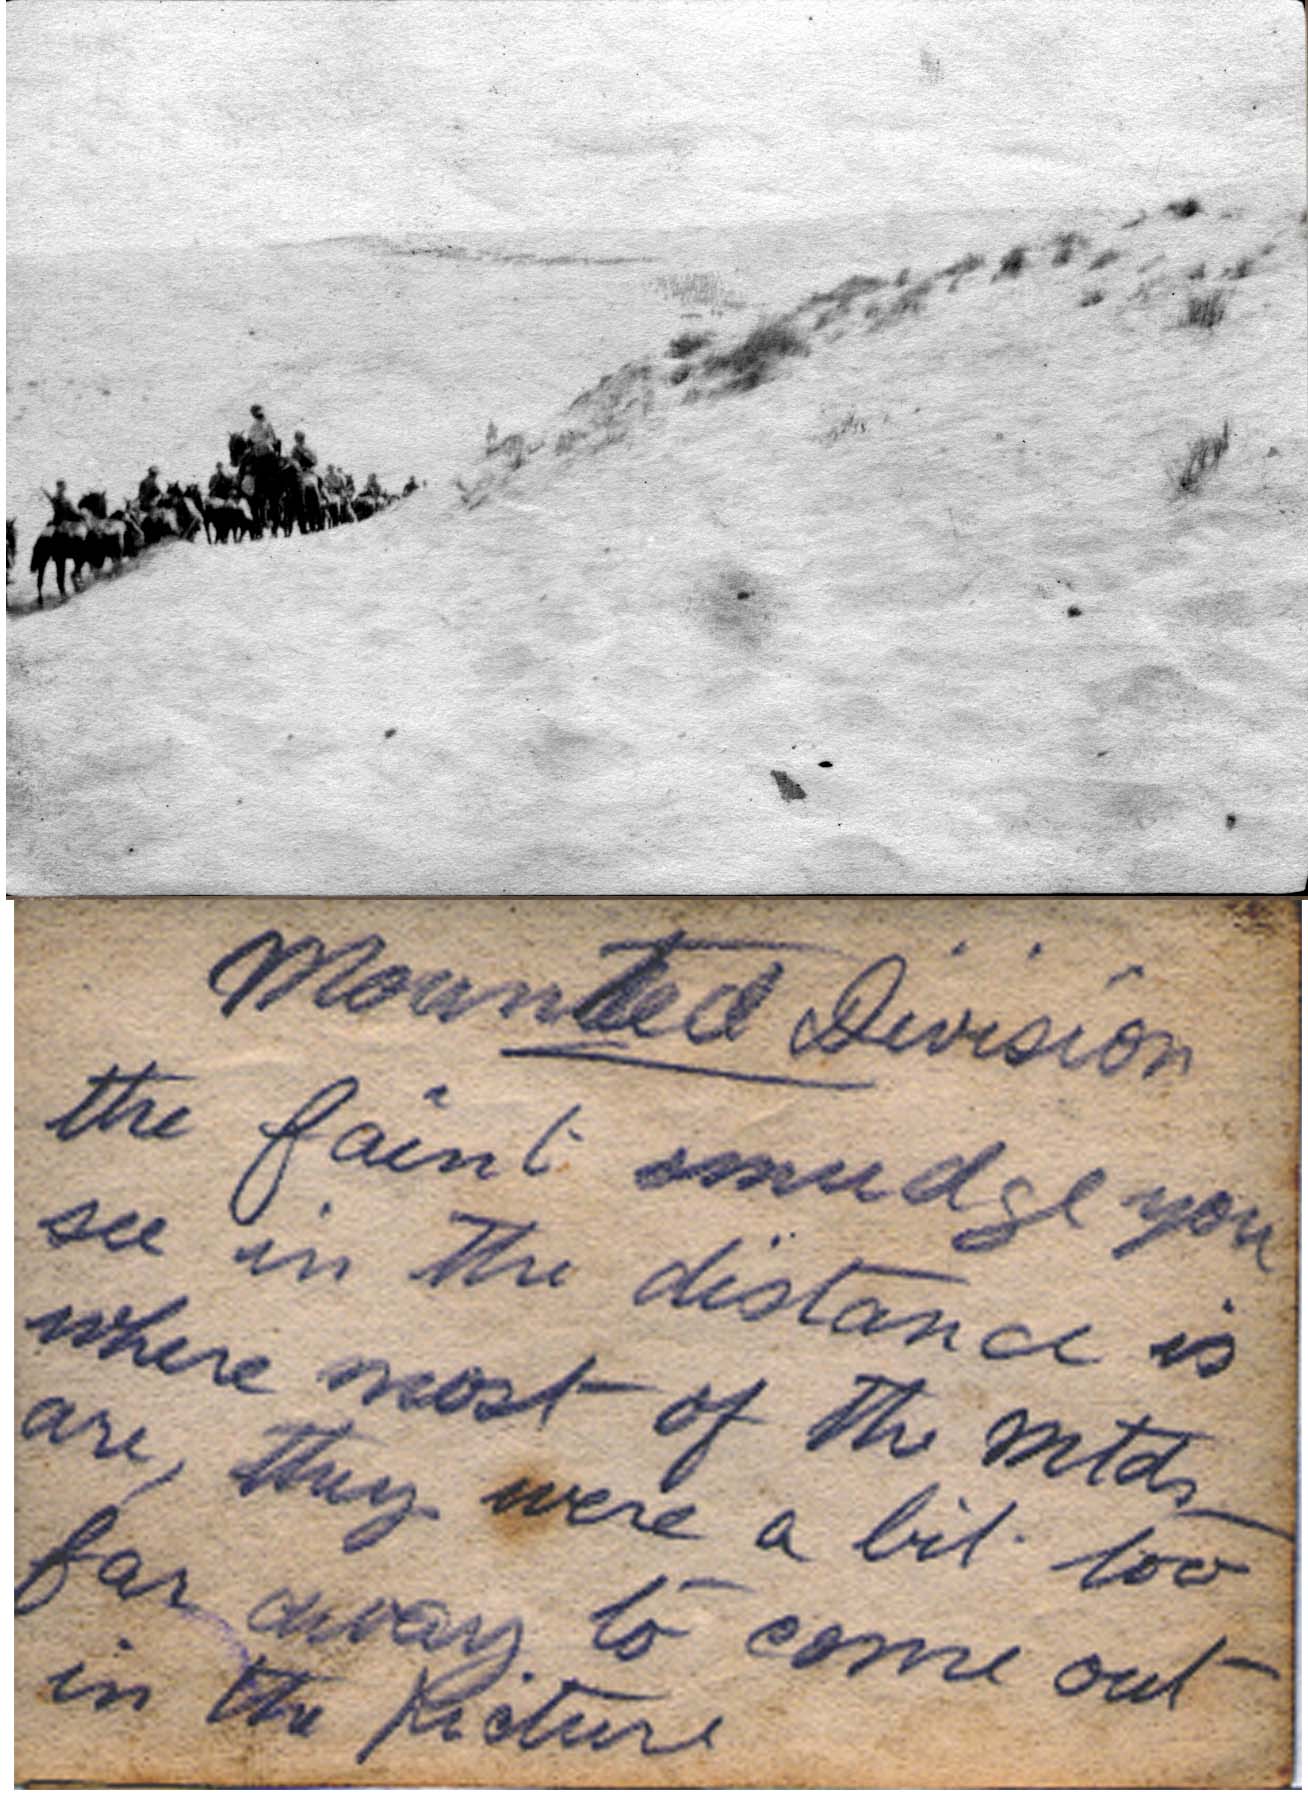 Mounted Division
the faint smudge you
see in the distance is
where most of the mtds
are, they were a bit too
far away to come out
in the picture